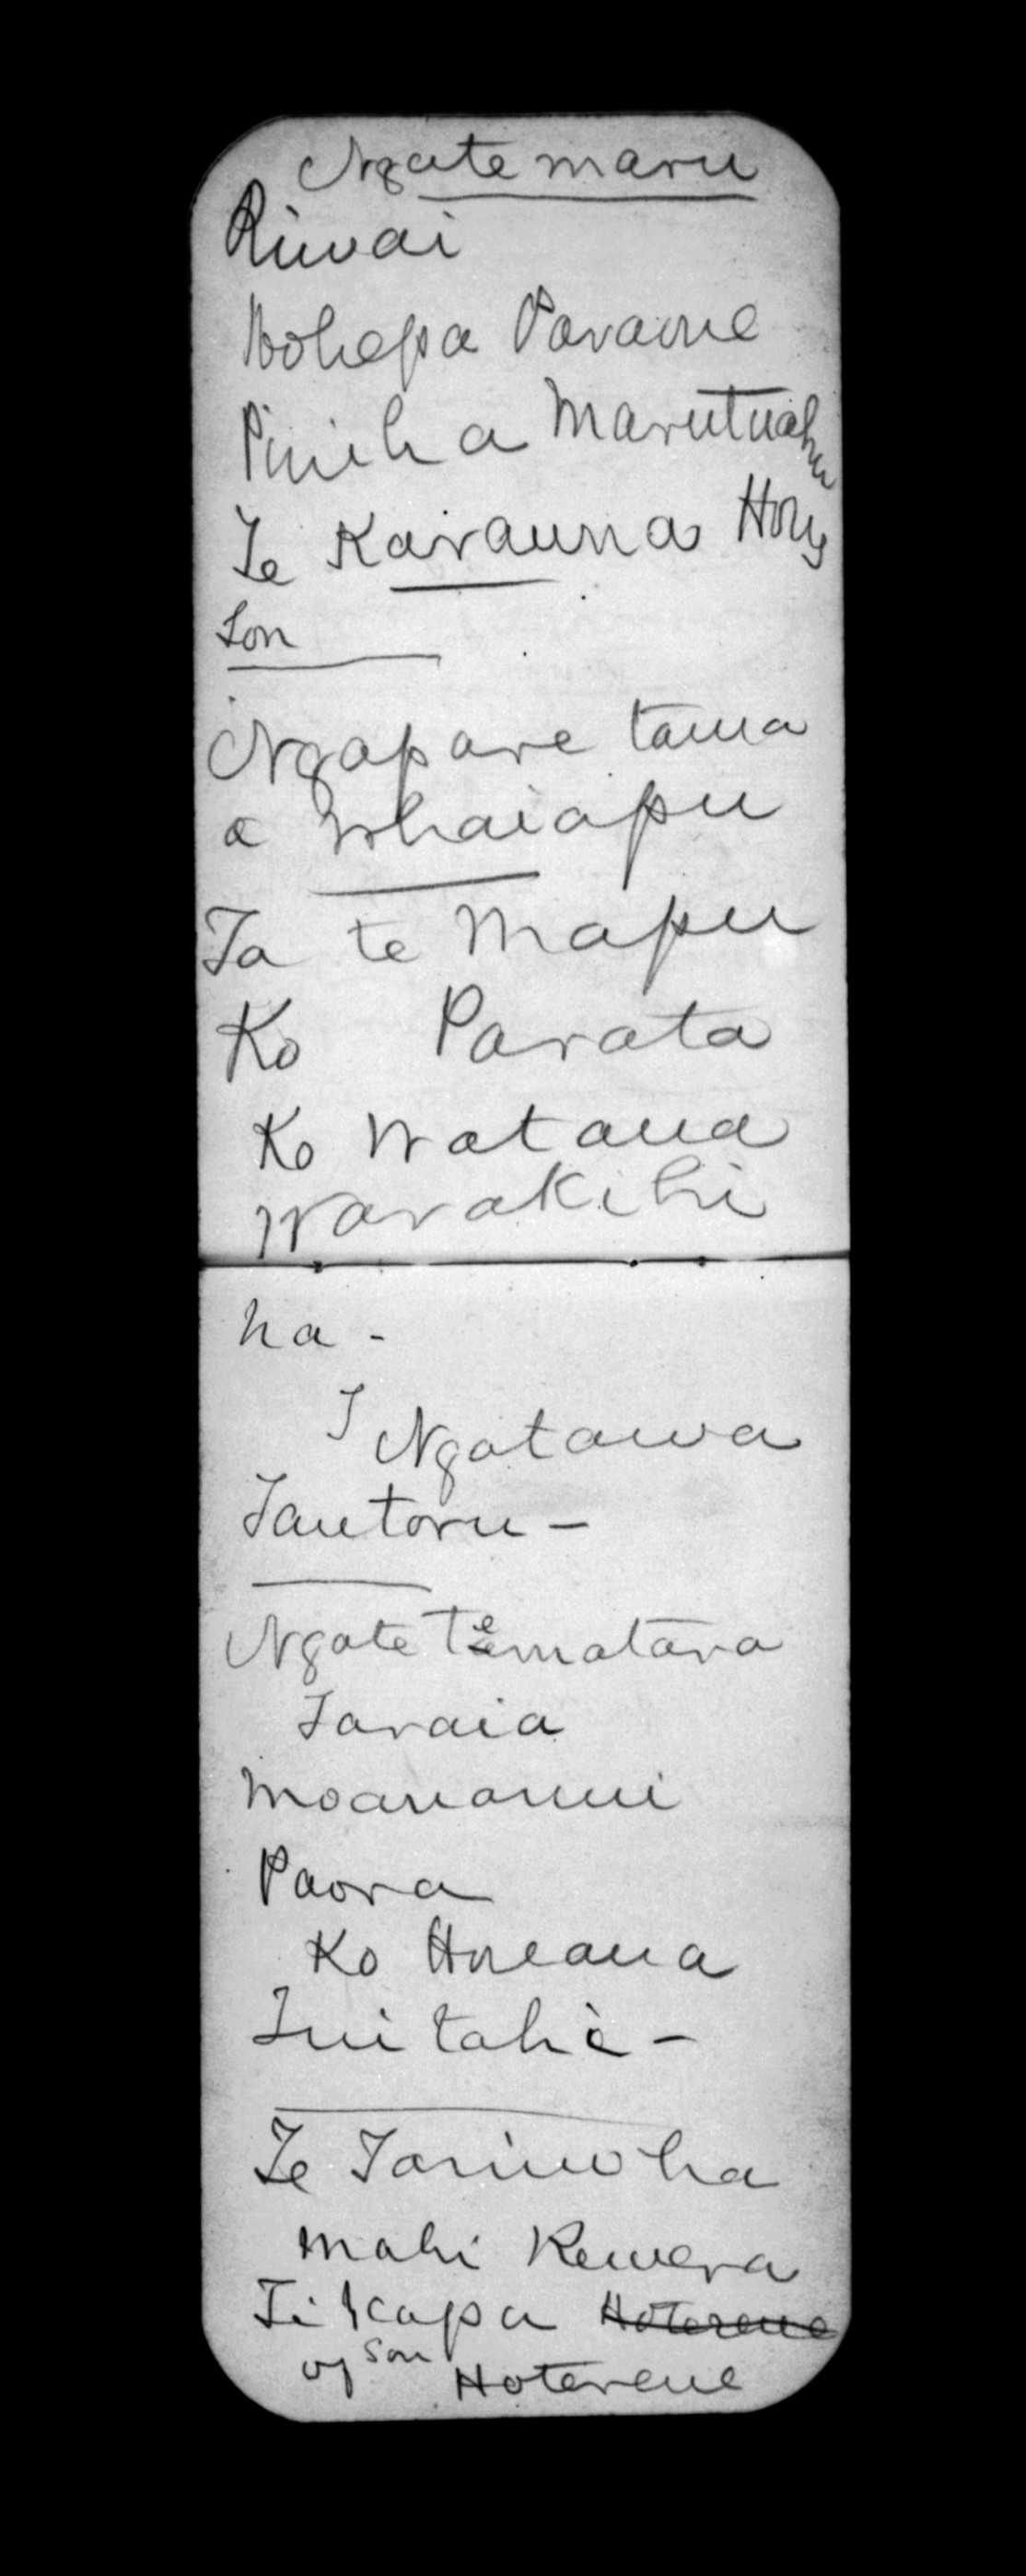 Ngatemaru
Riwai
Hohepa Paraone
Piniha Marutuahu
Te Karauna Hou
Son
Ngapare tama
a Whaiapu
Ta te Mapu
Ko Parata
Ko Watana
Warakihi
ha -
I Ngatawa
Tautoru -
Ngate Tematara
Taraia
Moananui
Paora
Ko Hoeana
Tuitahi -
Te Taniwha
Mahi Rewera
Ti Kapa Hoterene
son
of Hoterene